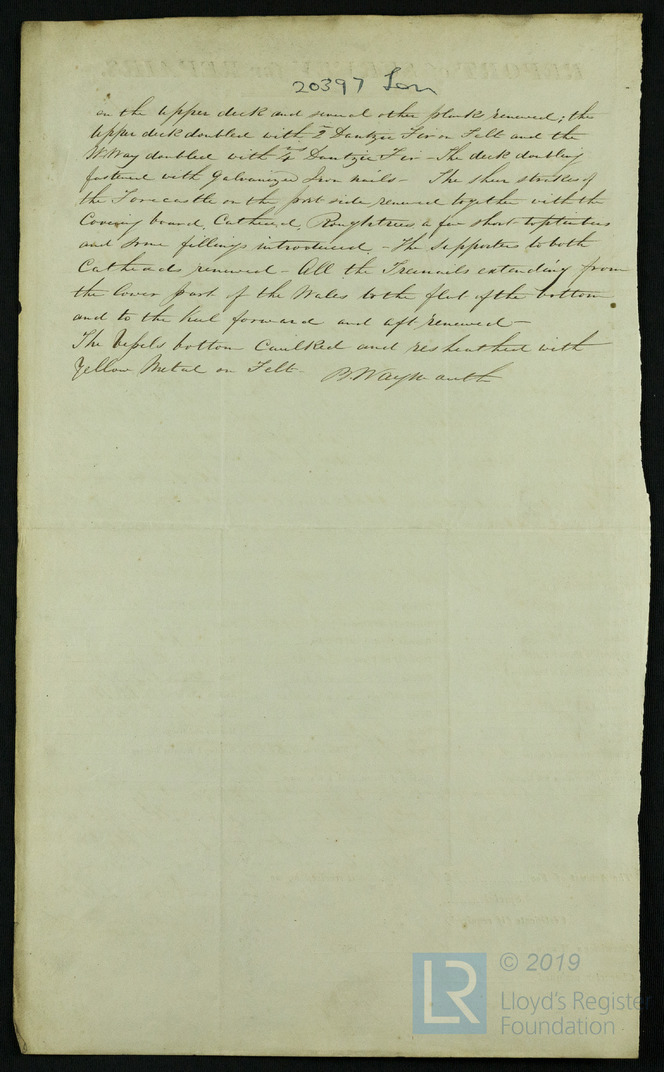 20397 Lon
on the upper deck and several other planks renewed; the
upper deck doubled with 2 Dantzic Fir on Felt and the
W.Way doubled with Dantzic Fir - The deck doubling
fastened with Galvanized Iron nails - The sheer strakes of
the Forecastle on the port side renewed together with the
Covering board, Cathead, Roughtrees a few short toptimbers
and some fillings introduced - The Supporters to both
Catheads renewed - All the Treenails extending from
the lower part of the Wales to the flat of the bottom
and to the keel forward and aft renewed -
The Vessels bottom Caulked and resheathed with
Yellow Metal on Felt - B. Waymouth
REPORT of SURVEY for REPAIRS
LR
© 2019
Lloyd's Register
Foundation